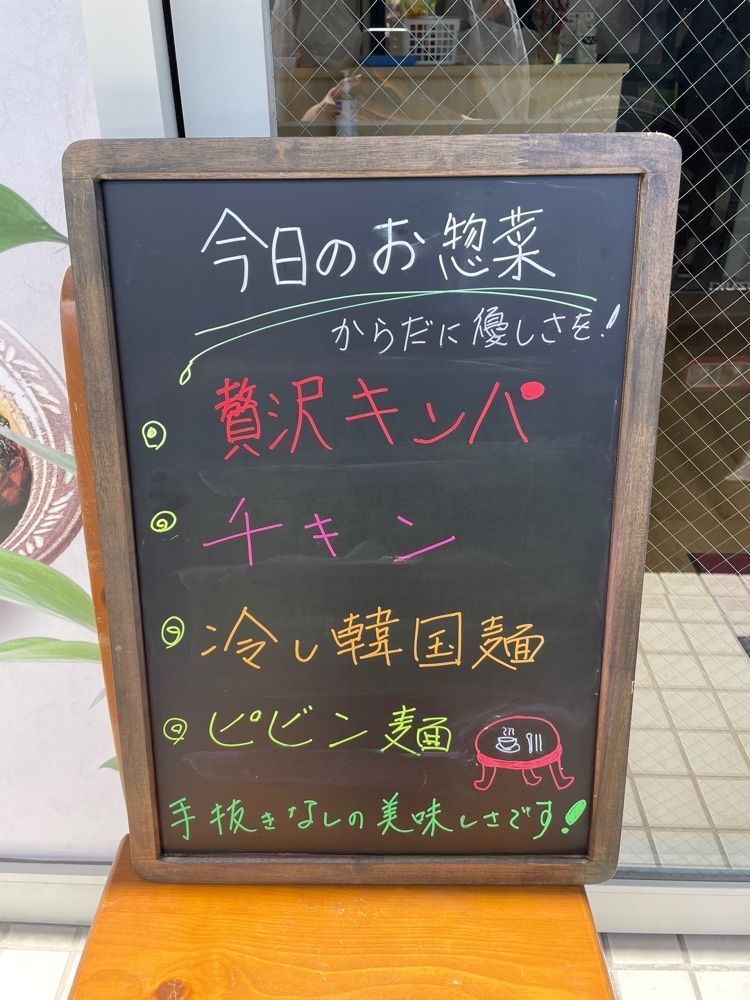 今日のお惣菜
からだに優しさを!
贅沢キンパ
チキン
冷し韓国麺
ピビン麺
手抜きなしの美味しさです!